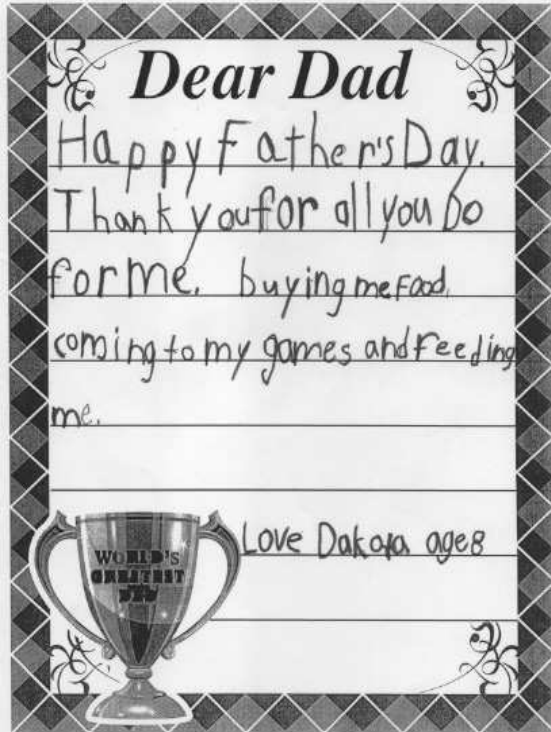 Dear Dad
Happy Father's Day.
Thank you for all you Do
for me. buying me Food,
coming to my games and Feeding
me.
Love Dakota age 8
WORLD'S
GREATEST
DAD